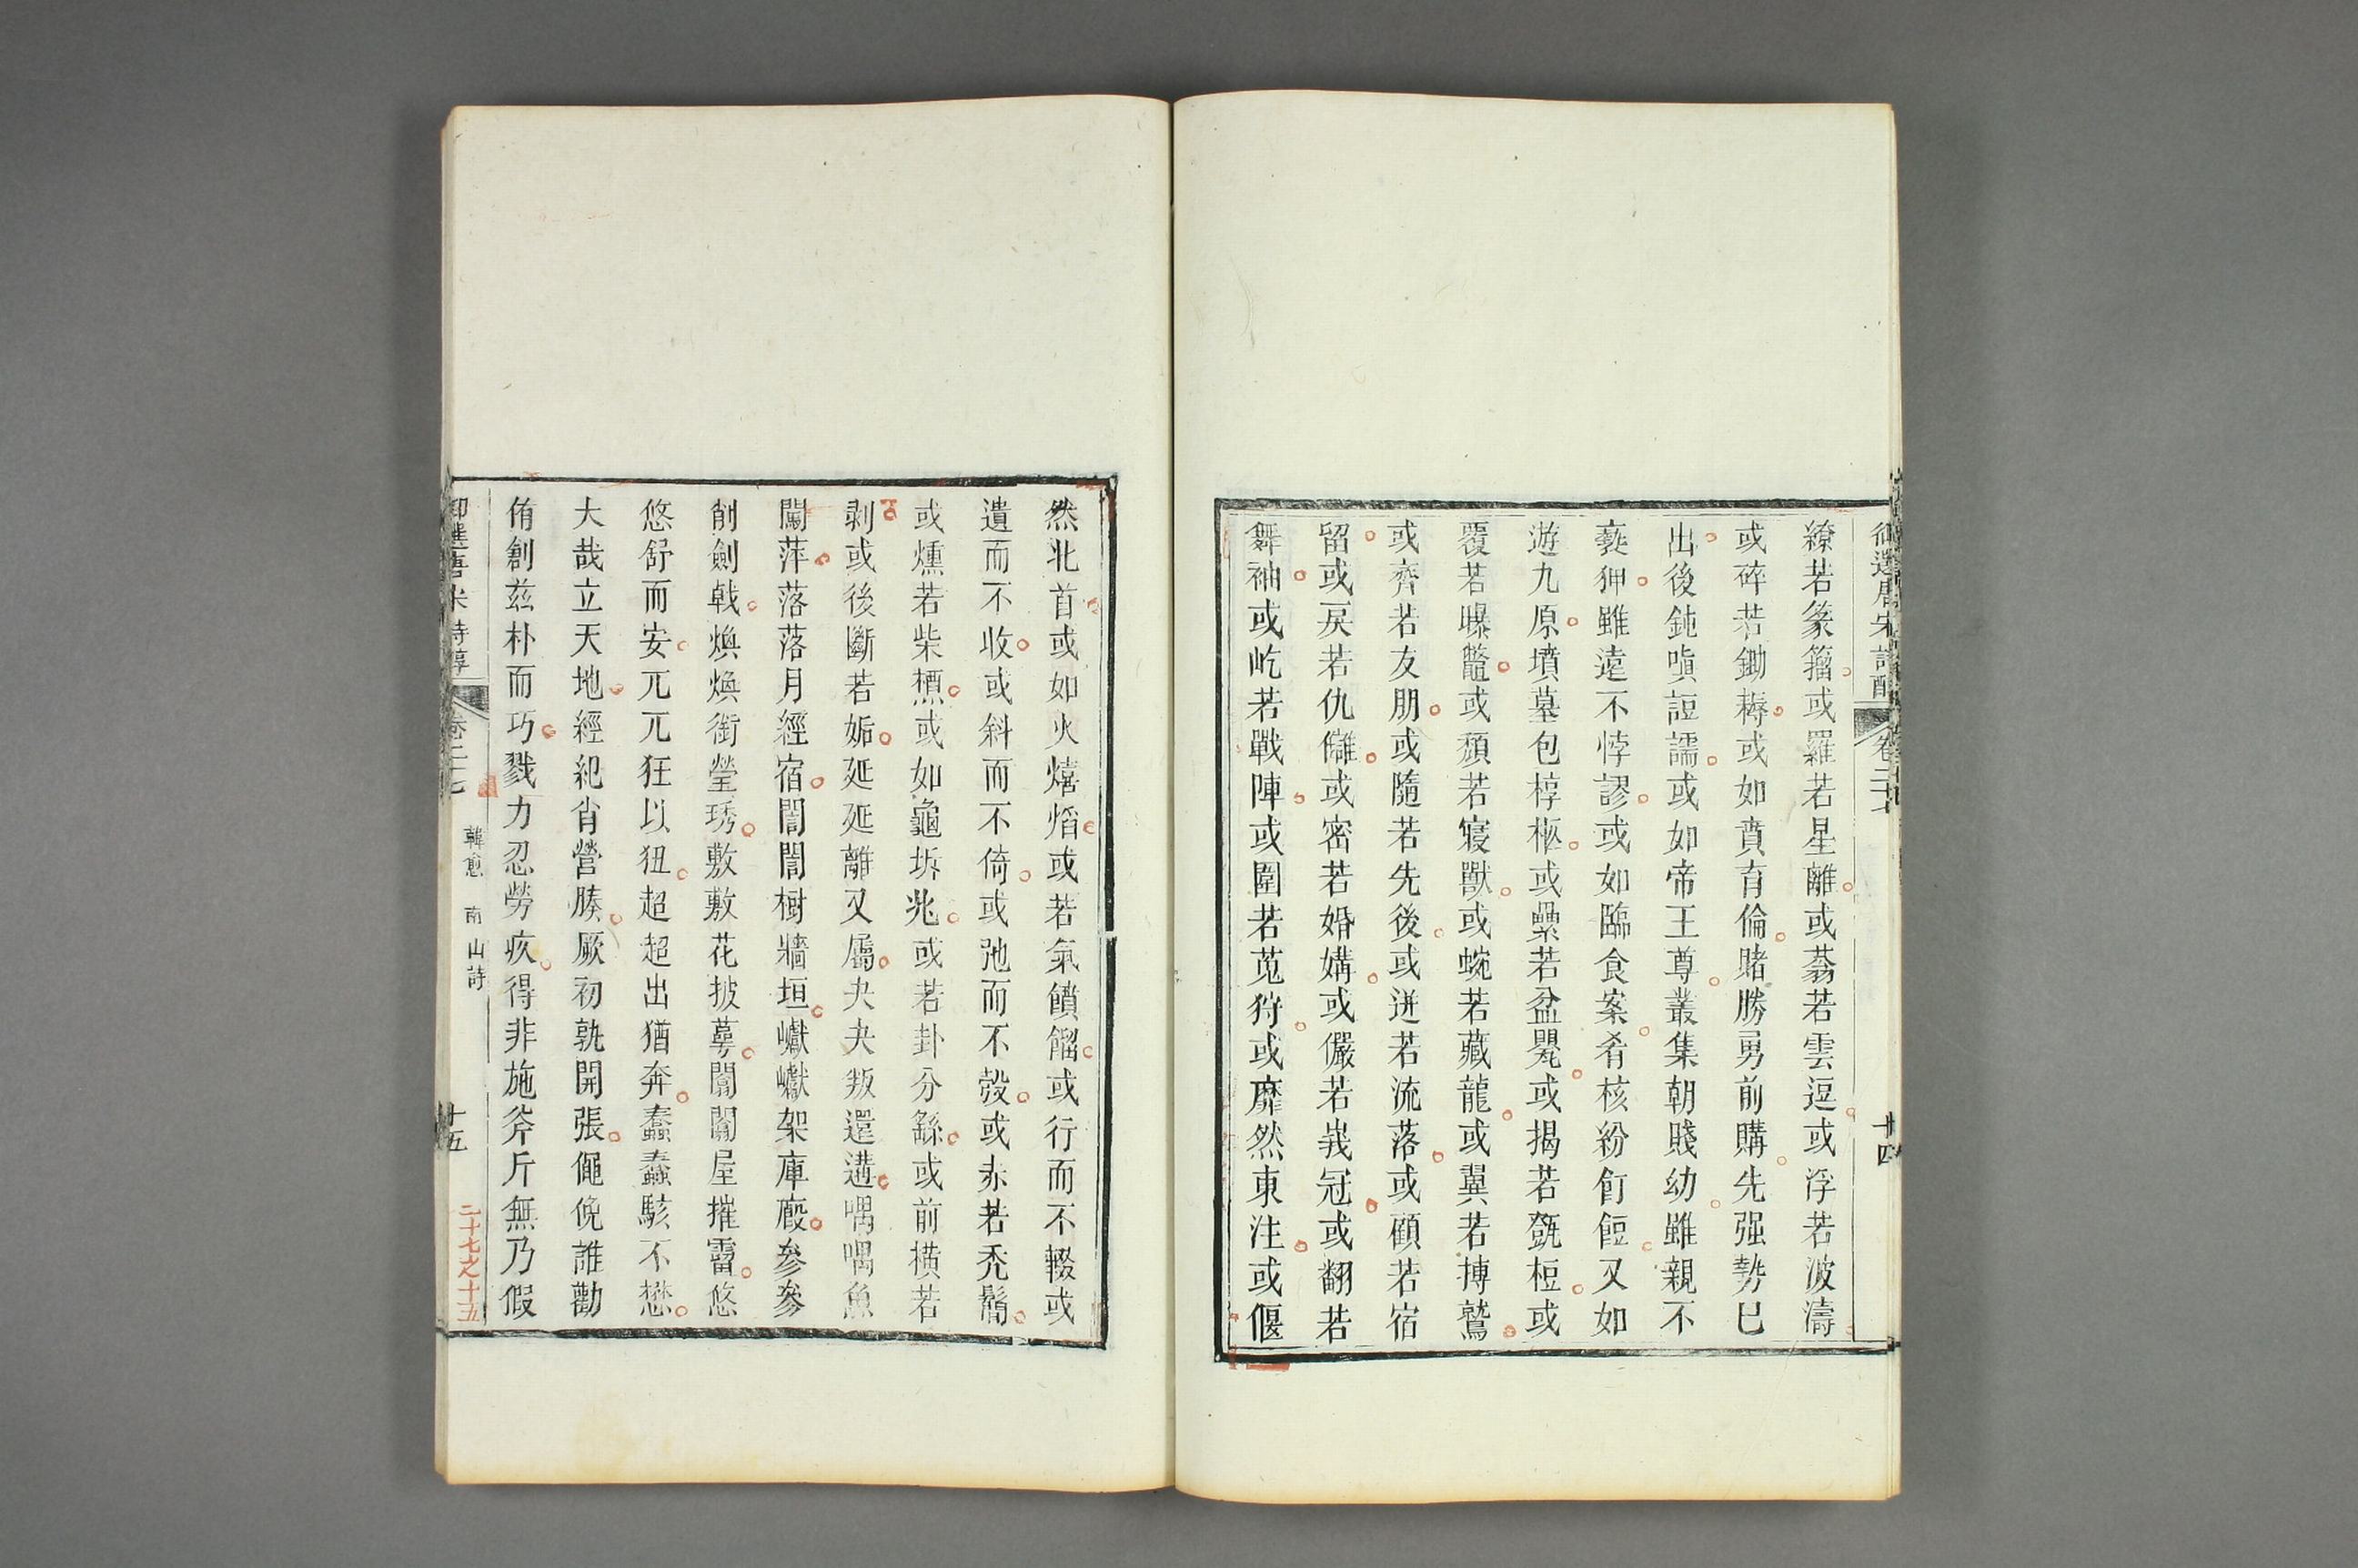 御選唐宋詩醇 卷二十七 十四
繚若篆籀或羅若星離或蓊若雲逗或浮若波濤
或碎若鋤耨或如賁育倫賭勝勇前購先强勢已
出後鈍嗔䛠譳或如帝王尊叢集朝賤幼雖親不
褻狎雖遠不悖謬或如臨食案肴核紛飣餖又如
遊九原墳墓包椁柩或纍若盆甖或揭若㽅梪或
覆若曝鼈或頹若寢獸或蜿若藏龍或翼若搏鷲
或齊若友朋或隨若先後或迸若流落或顧若宿
留或戾若仇讎或密若婚媾或儼若峩冠或翻若
舞袖或屹若戰陣或圍若蒐狩或靡然東注或偃
然北首或如火熺焰或若氣饙餾或行而不輟或
遺而不收或斜而不倚或弛而不彀或赤若禿鬜
或燻若柴槱或如龜坼兆或若卦分繇或前橫若
剥或後斷若姤延延離又屬夬夬叛還遘喁喁魚
闖萍落落月經宿誾誾樹牆垣巘巘架庫廄參參
削劍戟煥煥銜瑩琇敷敷花披萼闟闟屋摧霤悠
悠舒而安兀兀狂以狃超超出猶奔蠢蠢駭不懋
大哉立天地經紀肖營腠厥初孰開張僶俛誰勸
侑創茲朴而巧戮力忍勞疚得非施斧斤無乃假
御選唐宋詩醇 卷二十七 韓愈 南山詩 十五
二十七之十五